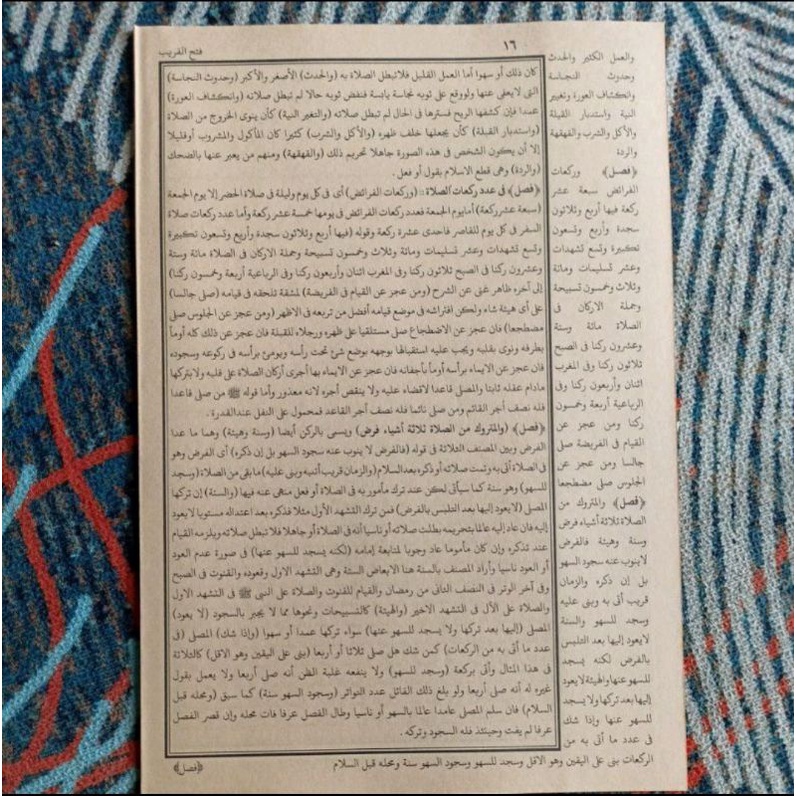 ١٦
فتح القريب
والعمل الكثير والحدث
وحدوث النجاسة
وانكشاف العورة وتغيير
النية واستدبار القبلة
والأكل والشرب والقهقهة
والردة
﴿فصل﴾ وركعات
الفرائض سبعة عشر
ركعة فيها أربع وثلاثون
سجدة وأربع وتسعون
تكبيرة وتسع تشهدات
وعشر تسليمات ومائة
وثلاث وخمسون تسبيحة
وجملة الاركان فى
الصلاة مائة وستة
وعشرون ركنا فى الصبح
ثلاثون ركنا وفى المغرب
اثنان وأربعون ركنا وفى
الرباعية أربعة وخمسون
ركنا ومن عجز عن
القيام فى الفريضة صلى
جالسا ومن عجز عن
الجلوس صلى مضطجعا
﴿فصل﴾ والمتروك من
الصلاة ثلاثة أشياء فرض
وسنة وهيئة فالفرض
لاينوب عنه سجود السهو
بل إن ذكره والزمان
قريب أتى به وبنى عليه
وسجد للسهو والسنة
لايعود إليها بعد التلبس
بالفرض لكنه يسجد
للسهو عنها والهيئة لايعود
إليها بعد تركها ولا يسجد
للسهو عنها وإذا شك
فى عدد ما أتى به من
الركعات بنى على اليقين وهو الاقل وسجد للسهو وسجود السهو سنة ومحله قبل السلام
كان ذلك أو سهوا أما العمل القليل فلاتبطل الصلاة به (والحدث) الأصغر والأكبر (وحدوث النجاسة)
التى لايعفى عنها ولووقع على ثوبه نجاسة يابسة فنفض ثوبه حالا لم تبطل صلاته (وانكشاف العورة)
عمدا فإن كشفها الريح فسترها فى الحال لم تبطل صلاته (والتغير النية) كأن ينوى الخروج من الصلاة
(واستدبار القبلة) كأن يجعلها خلف ظهره (والأكل والشرب) كثيرا كان المأكول والمشروب أوقليلا
إلا أن يكون الشخص فى هذه الصورة جاهلا تحريم ذلك (والقهقهة) ومنهم من يعبر عنها بالضحك
(والردة) وهى قطع الاسلام بقول أو فعل .
﴿فصل﴾ فى عدد ركعات الصلاة : (وركعات الفرائض) أى فى كل يوم وليلة فى صلاة الحضر إلا يوم الجمعة
(سبعة عشر ركعة) أمايوم الجمعة فعدد ركعات الفرائض فى يومها خمسة عشر ركعة وأما عدد ركعات صلاة
السفر فى كل يوم للقاصر فاحدى عشرة ركعة وقوله (فيها أربع وثلاثون سجدة وأربع وتسعون تكبيرة
وتسع تشهدات وعشر تسليمات ومائة وثلاث وخمسون تسبيحة وجملة الاركان فى الصلاة مائة وستة
وعشرون ركنا فى الصبح ثلاثون ركنا وفى المغرب اثنان وأربعون ركنا وفى الرباعية أربعة وخمسون ركنا)
إلى آخره ظاهر غنى عن الشرح (ومن عجز عن القيام فى الفريضة) لمشقة تلحقه فى قيامه (صلى جالسا)
على أى هيئة شاء ولكن افتراشه فى موضع قيامه أفضل من تربعه فى الاظهر (ومن عجز عن الجلوس صلى
مضطجعا) فان عجز عن الاضطجاع صلى مستلقيا على ظهره ورجلاه للقبلة فان عجز عن ذلك كله أومأ
بطرفه ونوى بقلبه ويجب عليه استقبالها بوجهه بوضع شئ تحت رأسه ويومئ برأسه فى ركوعه وسجوده
فان عجز عن الايماء برأسه أومأ بأجفانه فان عجز عن الايماء بها أجرى أركان الصلاة على قلبه ولايتركها
مادام عقله ثابتا والمصلى قاعدا لاقضاء عليه ولا ينقص أجره لانه معذور وأما قوله ﷺ من صلى قاعدا
فله نصف أجر القائم ومن صلى نائما فله نصف أجر القاعد فمحمول على النفل عندالقدرة .
﴿فصل﴾ (والمتروك من الصلاة ثلاثة أشياء فرض) ويسمى بالركن أيضا (وسنة وهيئة) وهما ما عدا
الفرض وبين المصنف الثلاثة فى قوله (فالفرض لا ينوب عنه سجود السهو بل إن ذكره) أى الفرض وهو
فى الصلاة أتى به وتمت صلاته أو ذكره بعد السلام (والزمان قريب أتى به وبنى عليه) ما بقى من الصلاة (وسجد
للسهو) وهو سنة كما سيأتى لكن عند ترك مأمور به فى الصلاة أو فعل منهى عنه فيها (والسنة) إن تركها
المصلى (لا يعود إليها بعد التلبس بالفرض) فمن ترك التشهد الأول مثلا فذكره بعد اعتداله مستويا لايعود
إليه فان عاد إليه عالما بتحريمه بطلت صلاته أو ناسيا أنه فى الصلاة أو جاهلا فلا تبطل صلاته ويلزمه القيام
عند تذكره وإن كان مأموما عاد وجوبا لمتابعة إمامه (لكنه يسجد للسهو عنها) فى صورة عدم العود
أو العود ناسيا وأراد المصنف بالسنة هنا الابعاض الستة وهى التشهد الاول وقعوده والقنوت فى الصبح
وفى آخر الوتر فى النصف الثانى من رمضان والقيام للقنوت والصلاة على النبى ﷺ فى التشهد الاول
والصلاة على الآل فى التشهد الاخير (والهيئة) كالتسبيحات ونحوها مما لا يجبر بالسجود (لا يعود)
المصلى (إليها بعد تركها ولا يسجد للسهو عنها) سواء تركها عمدا أو سهوا (وإذا شك) المصلى (فى
عدد ما أتى به من الركعات) كمن شك هل صلى ثلاثا أو أربعا (بنى على اليقين وهو الاقل) كالثلاثة
فى هذا المثال وأتى بركعة (وسجد للسهو) ولا ينفعه غلبة الظن أنه صلى أربعا ولا يعمل بقول
غيره له أنه صلى أربعا ولو بلغ ذلك القائل عدد التواتر (وسجود السهو سنة) كما سبق (ومحله قبل
السلام) فان سلم المصلى عامدا عالما بالسهو أو ناسيا وطال الفصل عرفا فات محله وإن قصر الفصل
عرفا لم يفت وحينئذ فله السجود وتركه .
﴿فصل﴾